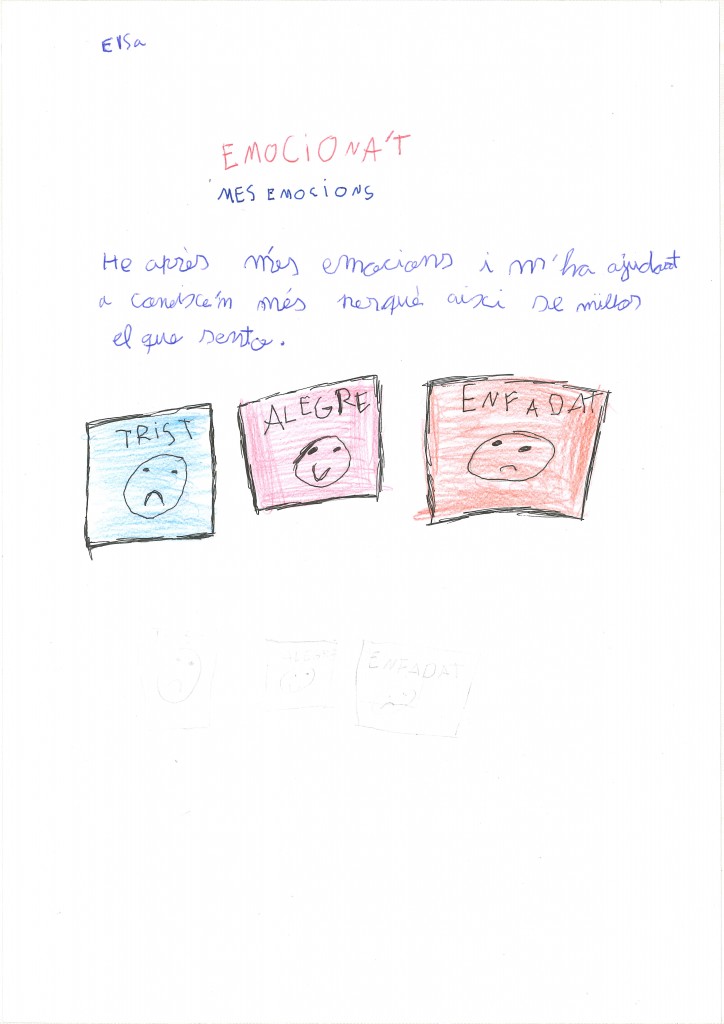 Elsa
EMOCIONA'T
MES EMOCIONS
He après més emocions i m'ha ajudat
a coneixe'm més perquè aixi se millor
el que sento.
TRIST ALEGRE ENFADAT
ALEGRE ENFADAT